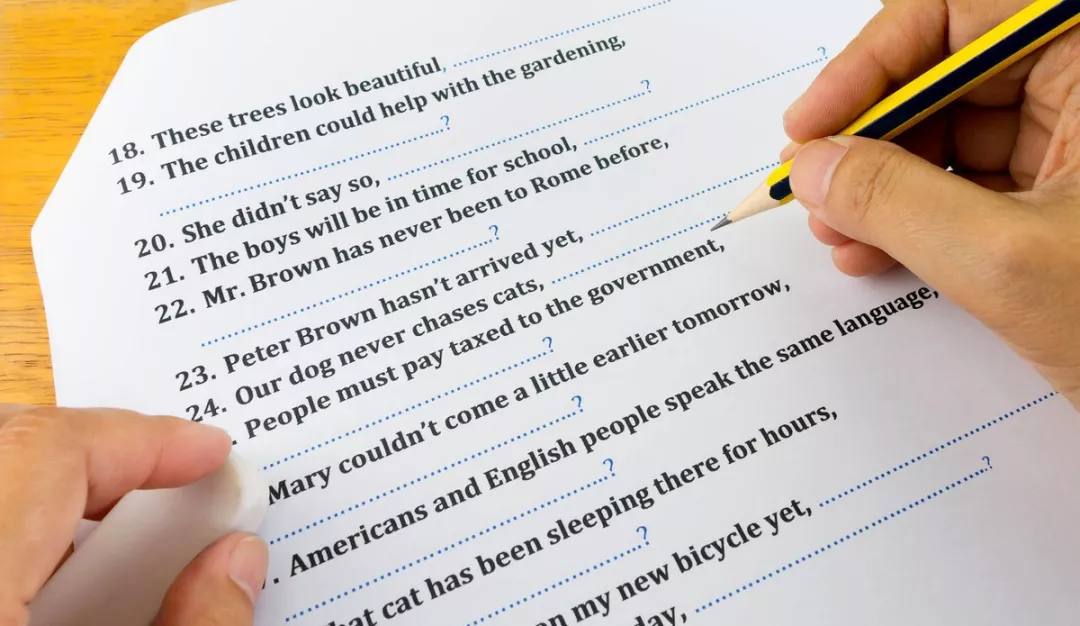 18. These trees look beautiful, ....................
19. The children could help with the gardening,
....................?
20. She didn't say so, ....................?
21. The boys will be in time for school, ....................?
22. Mr. Brown has never been to Rome before,
....................?
23. Peter Brown hasn't arrived yet, ....................
24. Our dog never chases cats, ....................
. People must pay taxed to the government,
....................?
Mary couldn't come a little earlier tomorrow,
....................?
. Americans and English people speak the same language,
....................?
cat has been sleeping there for hours,
....................?
my new bicycle yet, ....................
....................?